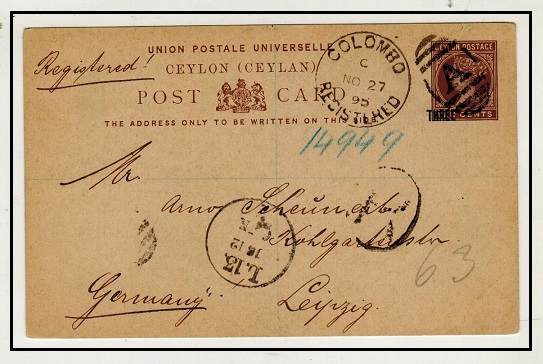 UNION POSTALE UNIVERSELLE
Registered!
CEYLON (CEYLAN)
POST CARD
THE ADDRESS ONLY TO BE WRITTEN ON THIS
COLOMBO
C
NO 27
95
REGISTERED
CEYLON POSTAGE
THREE CENTS
14949
Mr.
Arno Scheunert
L.13.
Germany
Leipzig.
63